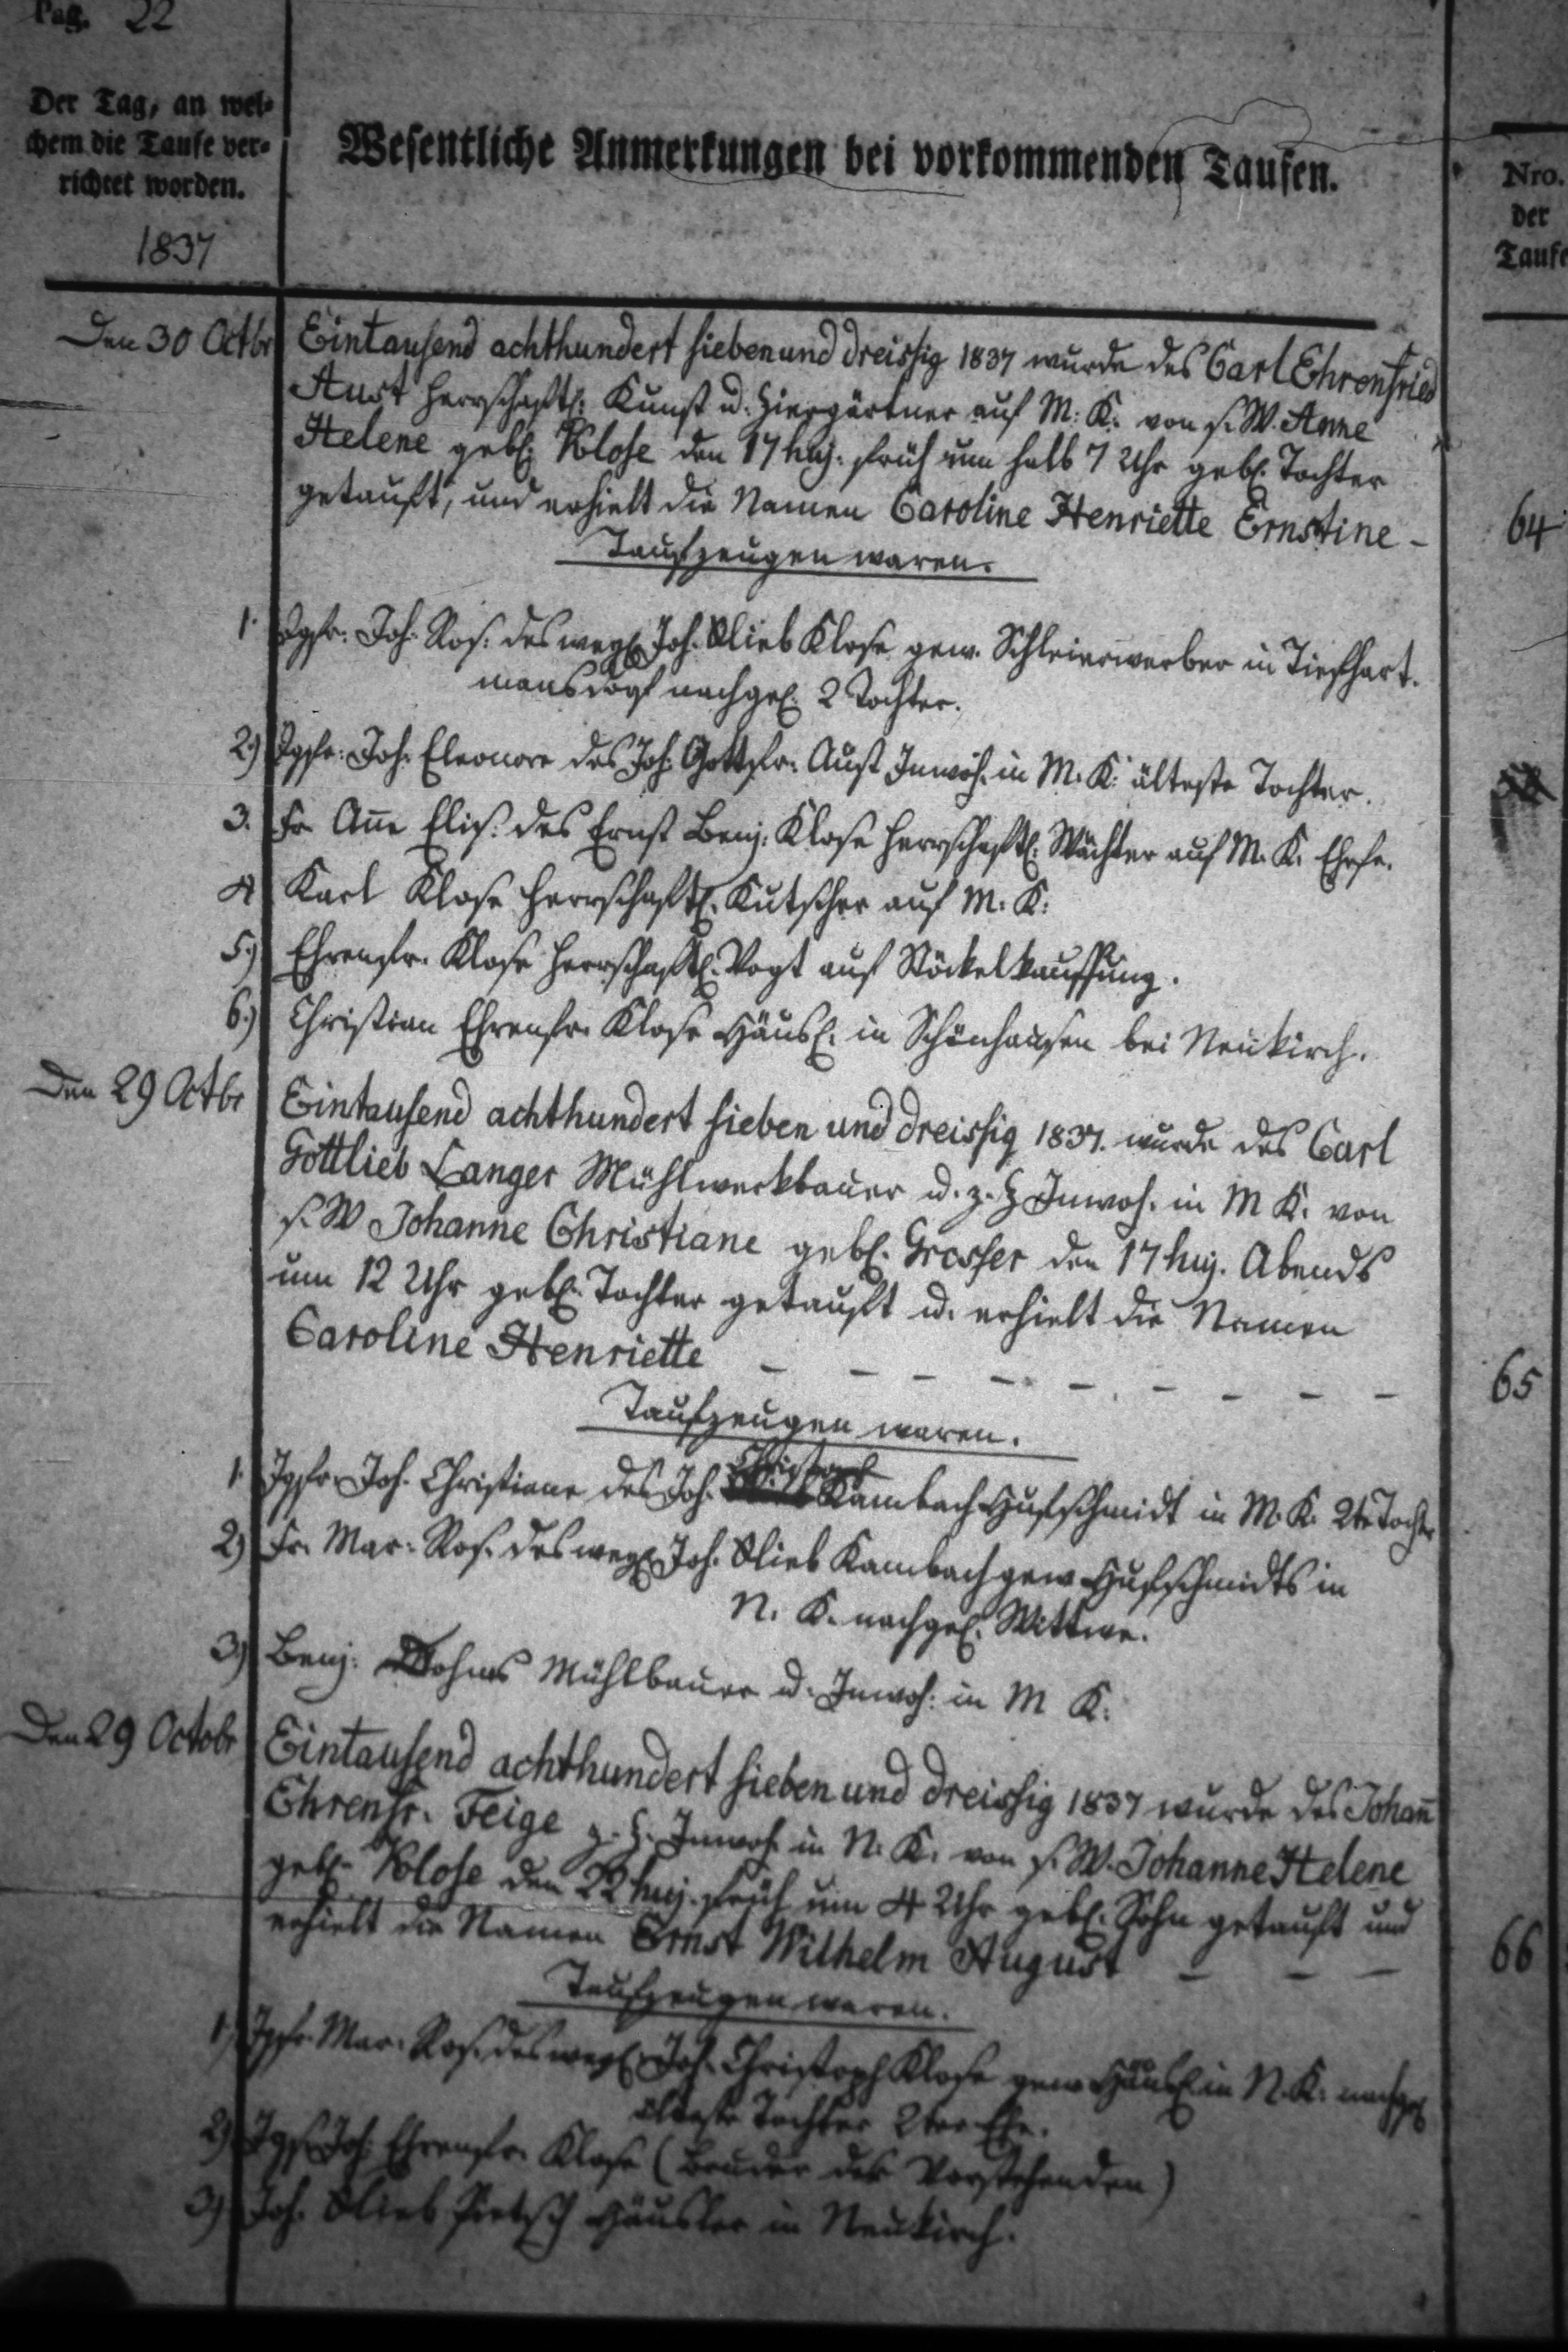 Pag. 22
Der Tag, an wel-
chem die Taufe ver-
richtet worden.
1837
Wesentliche Anmerkungen bei vorkommenden Taufen.
Nro.
der
Taufe
Den 30 Octbr
Eintausend achthundert sieben und dreissig 1837 wurde des Carl Ehrenfried
Aust herrschaftl: Kunst u. Ziergärtner auf M: K: von s. W. Anne
Helene gebl. Klose den 17 huj. früh um halb 7 Uhr gebl. Tochter
getauft, und erhielt die Namen Caroline Henriette Ernstine –
64
Taufzeugen waren.
1. Jgfr: Joh: Ros: des wegl. Joh. Glieb Klose gew. Schleierweber in Tiefhart-
mansdorf nachgel. 2 Tochter.
2.) Jgfr: Joh. Eleonore des Joh: Gottfr: Aust Inwoh. in M. K: älteste Tochter.
3. Fr. Añe Elis. des Ernst Benj: Klose herrschaftl. Wächter auf M. K. Ehefr.
4 Karl Klose herrschaftl. Kutscher auf M: K:
5.) Ehrenfr. Klose herrschaftl. Vogt auf Stöckelkauffung.
6.) Christian Ehrenfr. Klose Häusl. in Schönhausen bei Neukirch.
Den 29 Octbr
Eintausend achthundert sieben und dreissig 1837. wurde des Carl
Gottlieb Langer Mühlwerkbauer u. z. Z Inwoh. in M K. von
s. W Johanne Christiane gebl. Grosser den 17 huj. Abends
um 12 Uhr gebl. Tochter getauft u. erhielt die Namen
Caroline Henriette – – – – – – – – –
65
Taufzeugen waren.
1. Jgfr Joh. Christiane des Joh. Christoph Kambach Hufschmidt in M. K. 2te Tochtr
2) Fr. Mar: Ros. des wegl. Joh. Glieb Kambach gew Hufschmidts in
N. K. nachgel. Wittwe.
3) Benj: Mühlbauer u. Inwoh: in M K:
Den 29 Octobr
Eintausend achthundert sieben und dreissig 1837 wurde des Johañ
Ehrenfr. Feige z. Z. Inwoh. in N. K. von s. W. Johanne Helene
gebl. Klose den 22 huj. früh um 4 Uhr gebl. Sohn getauft und
erhielt die Namen Ernst Wilhelm August – – –
66
Taufzeugen waren.
1.) Jgfr. Mar: Ros. des wegl. Joh. Christoph Klose gew Häusl in N. K: nachgel
älteste Tochter 2ter Ehe.
2) Jgs. Joh: Ehrenfr. Klose (Bruder der Vorstehenden)
3) Joh. Glieb Häusler in Neukirch.